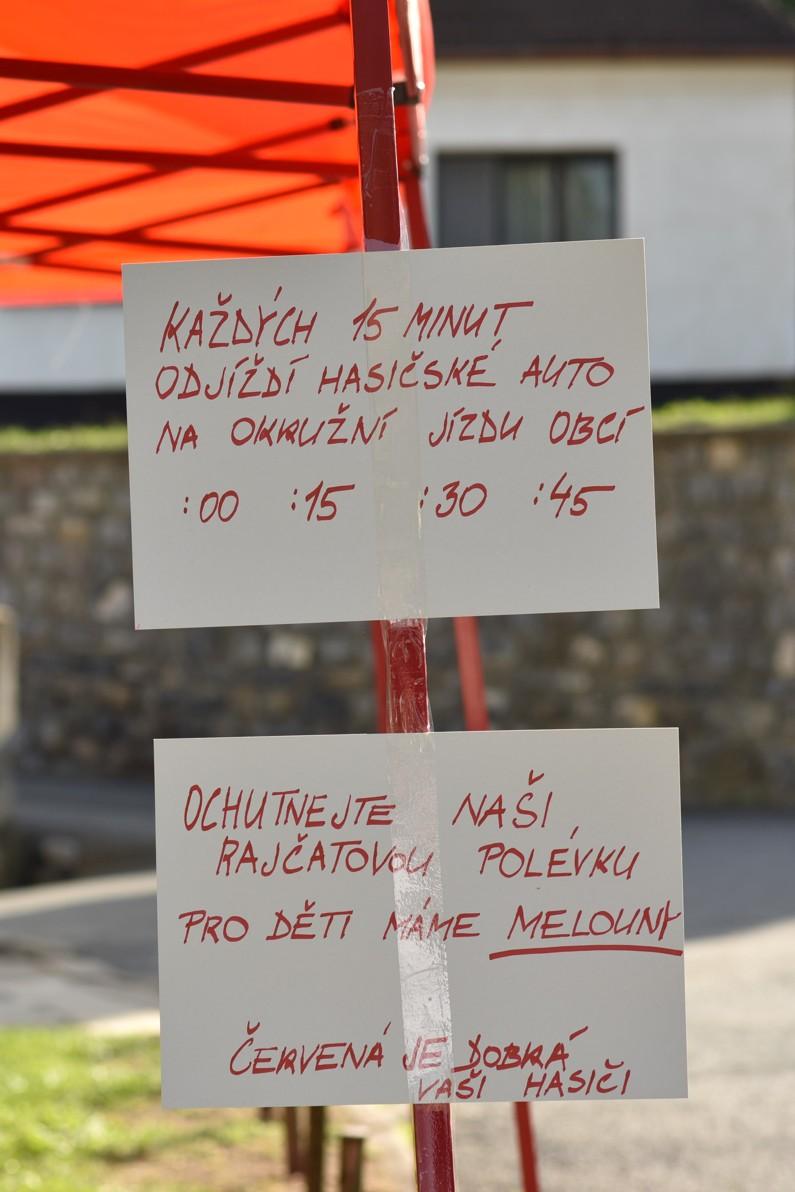 KAŽDÝCH 15 MINUT
ODJÍŽDÍ HASIČSKÉ AUTO
NA OKRUŽNÍ JÍZDU OBCÍ
:00 :15 :30 :45
OCHUTNEJTE NAŠI
RAJČATOVOU POLÉVKU
PRO DĚTI MÁME MELOUNY
ČERVENÁ JE DOBRÁ
VAŠI HASIČI